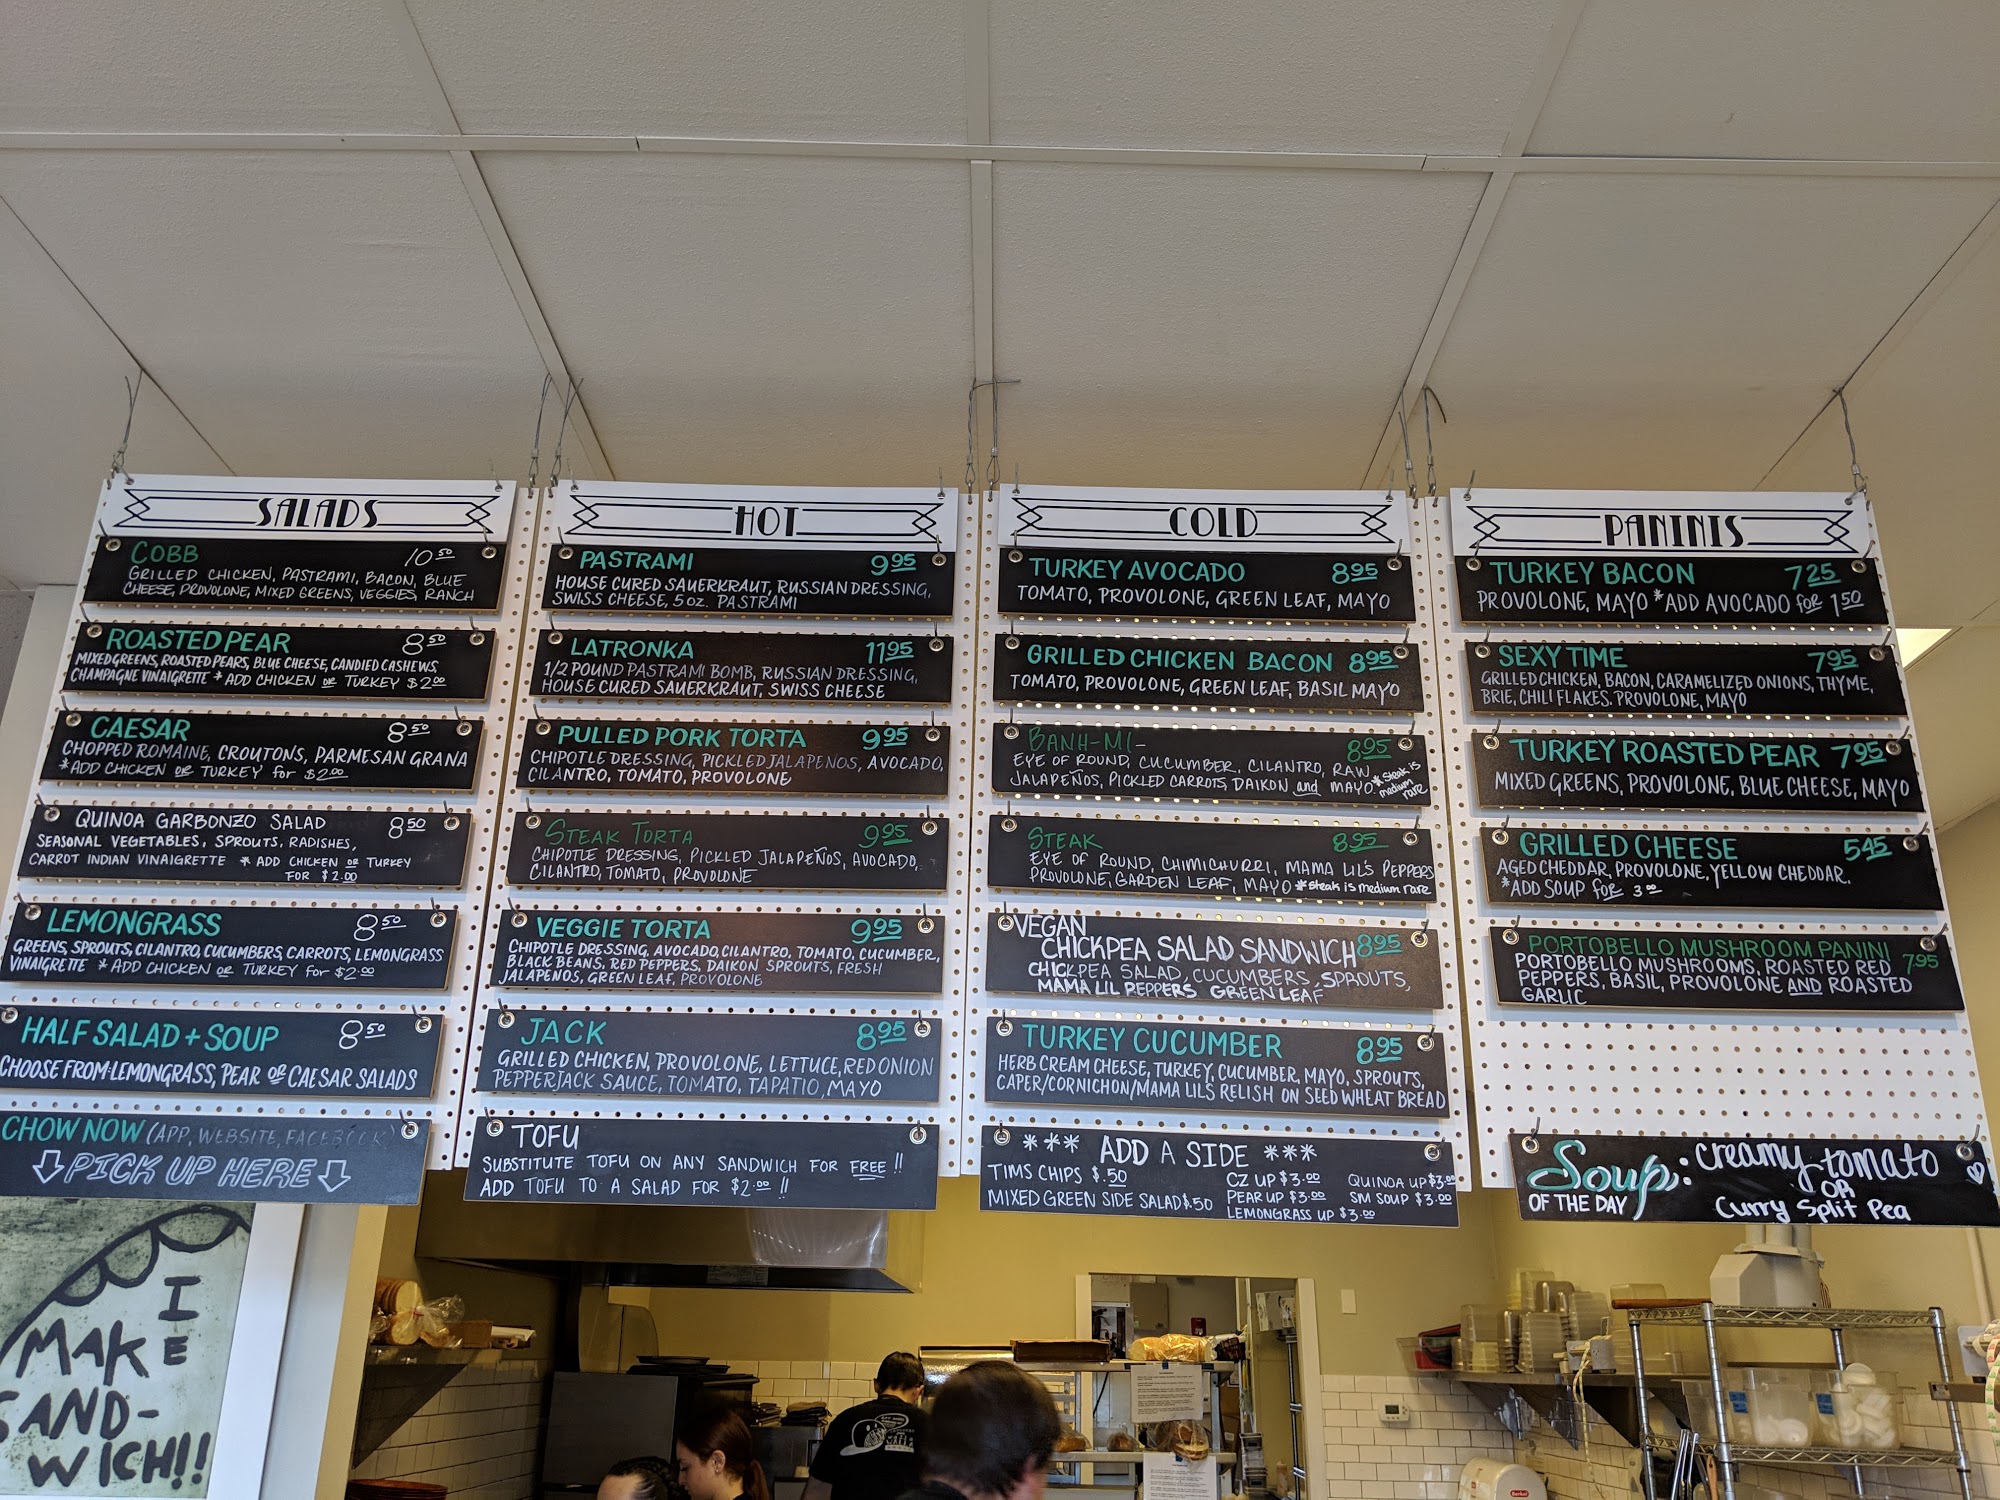 SALADS
COBB 10.50
GRILLED CHICKEN, PASTRAMI, BACON, BLUE
CHEESE, PROVOLONE, MIXED GREENS, VEGGIES, RANCH
ROASTED PEAR 8.50
MIXED GREENS, ROASTED PEARS, BLUE CHEESE, CANDIED CASHEWS
CHAMPAGNE VINAIGRETTE * ADD CHICKEN OR TURKEY $2.00
CAESAR 8.50
CHOPPED ROMAINE, CROUTONS, PARMESAN GRANA
*ADD CHICKEN OR TURKEY for $2.00
QUINOA GARBONZO SALAD 8.50
SEASONAL VEGETABLES, SPROUTS, RADISHES,
CARROT INDIAN VINAIGRETTE * ADD CHICKEN OR TURKEY
FOR $2.00
LEMONGRASS 8.50
GREENS, SPROUTS, CILANTRO, CUCUMBERS, CARROTS, LEMONGRASS
VINAIGRETTE * ADD CHICKEN OR TURKEY for $2.00
HALF SALAD + SOUP 8.50
CHOOSE FROM: LEMONGRASS, PEAR OR CAESAR SALADS
CHOW NOW (APP, WEBSITE, FACEBOOK)
PICK UP HERE
HOT
PASTRAMI 9.95
HOUSE CURED SAUERKRAUT, RUSSIAN DRESSING,
SWISS CHEESE, 5 oz. PASTRAMI
LATRONKA 11.95
1/2 POUND PASTRAMI BOMB, RUSSIAN DRESSING,
HOUSE CURED SAUERKRAUT, SWISS CHEESE
PULLED PORK TORTA 9.95
CHIPOTLE DRESSING, PICKLED JALAPENOS, AVOCADO,
CILANTRO, TOMATO, PROVOLONE
STEAK TORTA 9.95
CHIPOTLE DRESSING, PICKLED JALAPEÑOS, AVOCADO,
CILANTRO, TOMATO, PROVOLONE
VEGGIE TORTA 9.95
CHIPOTLE DRESSING, AVOCADO, CILANTRO, TOMATO, CUCUMBER,
BLACK BEANS, RED PEPPERS, DAIKON SPROUTS, FRESH
JALAPENOS, GREEN LEAF, PROVOLONE
JACK 8.95
GRILLED CHICKEN, PROVOLONE, LETTUCE, RED ONION
PEPPERJACK SAUCE, TOMATO, TAPATIO, MAYO
TOFU
SUBSTITUTE TOFU ON ANY SANDWICH FOR FREE!!
ADD TOFU TO A SALAD FOR $2.00!!
COLD
TURKEY AVOCADO 8.95
TOMATO, PROVOLONE, GREEN LEAF, MAYO
GRILLED CHICKEN BACON 8.95
TOMATO, PROVOLONE, GREEN LEAF, BASIL MAYO
BANH-MI- 8.95
EYE OF ROUND, CUCUMBER, CILANTRO, RAW
JALAPEÑOS, PICKLED CARROTS, DAIKON and MAYO. *steak is
medium
rare
STEAK 8.95
EYE OF ROUND, CHIMICHURRI, MAMA LIL'S PEPPERS
PROVOLONE, GARDEN LEAF, MAYO *steak is medium rare
VEGAN
CHICKPEA SALAD SANDWICH 8.95
CHICKPEA SALAD, CUCUMBERS, SPROUTS,
MAMA LIL PEPPERS GREEN LEAF
TURKEY CUCUMBER 8.95
HERB CREAM CHEESE, TURKEY, CUCUMBER, MAYO, SPROUTS,
CAPER/CORNICHON/MAMA LILS RELISH ON SEED WHEAT BREAD
*** ADD A SIDE ***
TIMS CHIPS $.50
MIXED GREEN SIDE SALAD $.50
CZ UP $3.00
PEAR UP $3.00
LEMONGRASS UP $3.00
QUINOA UP $3.00
SM SOUP $3.00
PANINIS
TURKEY BACON 7.25
PROVOLONE, MAYO *ADD AVOCADO for 1.50
SEXY TIME 7.95
GRILLED CHICKEN, BACON, CARAMELIZED ONIONS, THYME,
BRIE, CHILI FLAKES, PROVOLONE, MAYO
TURKEY ROASTED PEAR 7.95
MIXED GREENS, PROVOLONE, BLUE CHEESE, MAYO
GRILLED CHEESE 5.45
AGED CHEDDAR, PROVOLONE, YELLOW CHEDDAR.
*ADD SOUP for 3.00
PORTOBELLO MUSHROOM PANINI 7.95
PORTOBELLO MUSHROOMS, ROASTED RED
PEPPERS, BASIL, PROVOLONE AND ROASTED
GARLIC
Soup:
OF THE DAY
creamy tomato
OR
Curry Split Pea
I MAKE
SAND-
WICH!!